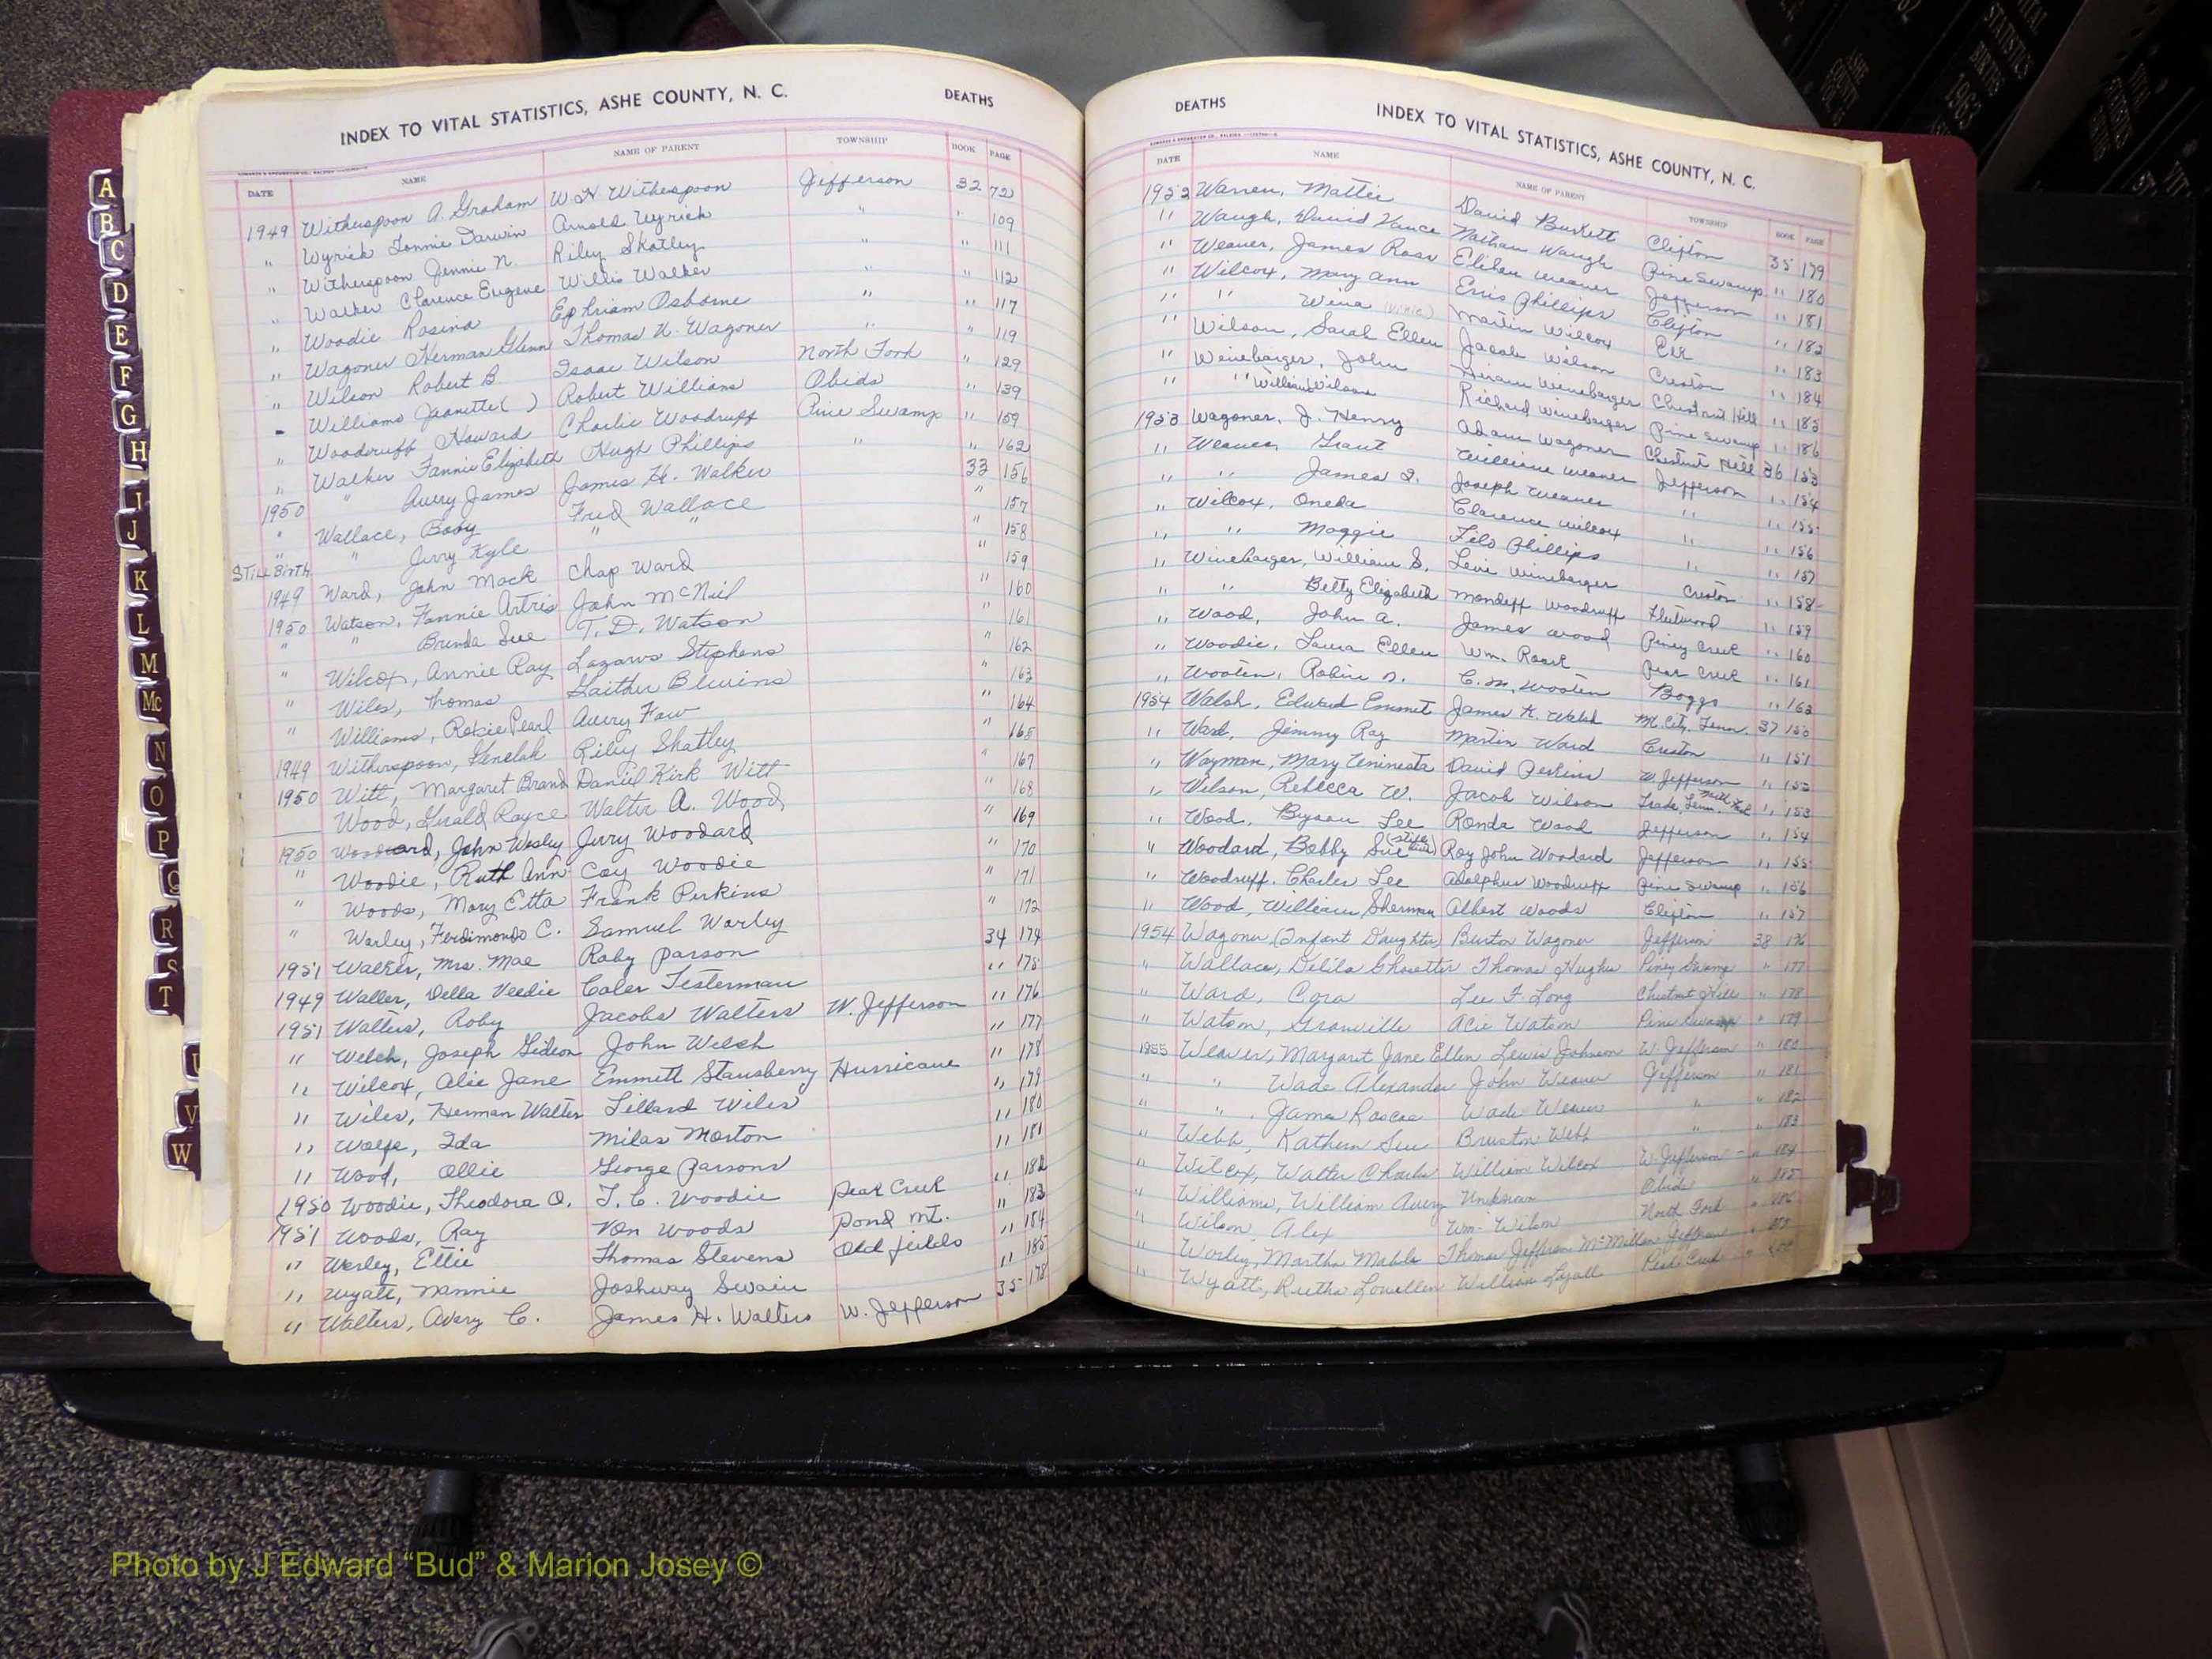 INDEX TO VITAL STATISTICS, ASHE COUNTY, N. C. DEATHS
DATE NAME NAME OF PARENT TOWNSHIP BOOK PAGE
1949 Witherspoon A. Graham W. H. Witherspoon Jefferson 32 72
" Wyrick Lonnie Darwin Arnold Wyrick " " 109
" Witherspoon Jennie N. Riley Shatley " " 111
" Walker Clarence Eugene Willis Walker " " 112
" Woodie Rosina Ephriam Osborne " " 117
" Wagoner Herman Glenn Thomas N. Wagoner " " 119
" Wilson Robert B. Isaac Wilson North Fork " 129
- Williams Jeanette ( ) Robert Williams Obids " 139
" Woodruff Howard Charlie Woodruff Pine Swamp " 159
" Walker Fannie Elizabeth Hugh Phillips " " 162
1950 " Avery James James H. Walker 33 156
" Wallace, Baby Fred Wallace " 157
" " Jerry Kyle " " " 158
STILL Birth
1949 Ward, John Mack Chap Ward " 159
1950 Watson, Fannie Artris John McNeil " 160
" " Brenda Sue T. D. Watson " 161
" Wilcox, Annie Ray Lazarus Stephens " 162
" Wiles, Thomas Gaither Blevins " 163
" Williams, Roxie Pearl Avery Faw " 164
1949 Witherspoon, Riley Shatley " 165
1950 Witt, Margaret Brand Daniel Kirk Witt " 167
Wood, Gerald Royce Walter A. Wood " 168
1950 Woodward, John Wesley Jerry Woodard " 169
" Woodie, Ruth Ann Coy Woodie " 170
" Woods, Mary Etta Frank Perkins " 171
" Worley, Ferdimondo C. Samuel Worley " 172
1951 Walker, Mrs. Mae Roby Parson 34 174
1949 Waller, Della Veedie Caler Testerman " 175
1951 Walters, Roby Jacobs Walters W. Jefferson " 176
" Welch, Joseph Gideon John Welch " 177
" Wilcox, Alie Jane Emmett Stansberry Hurricane " 178
" Wiles, Herman Walter Lillard Wiles " 179
" Wolfe, Ida Milas Morton " 180
" Wood, Ollie George Parsons " 181
1950 Woodie, Theodora O. T. C. Woodie Peak Creek " 182
1951 Woods, Ray Von Woods Pond Mt. " 183
" Worley, Ellie Thomas Stevens Old fields " 184
" Wyatt, Nannie Joshway Swain " 185
" Walters, Avery C. James H. Walters W. Jefferson 35 178
DEATHS INDEX TO VITAL STATISTICS, ASHE COUNTY, N. C.
DATE NAME NAME OF PARENT TOWNSHIP BOOK PAGE
1952 Warren, Mattie David Burkett Clifton 35 179
" Waugh, David Vance Nathan Waugh Pine Swamp " 180
" Weaver, James Ross Elihu Weaver Jefferson " 181
" Wilcox, Mary Ann Enis Phillips Clifton " 182
" " Wina Martin Wilcox Elk " 183
" Wilson, Sarah Ellen Jacob Wilson Creston " 184
" Winebarger, John Hiram Winebarger Chestnut Hill " 185
" " William Wilson Richard Winebarger Pine Swamp " 186
1953 Wagoner, J. Henry Adam Wagoner Chestnut Hill 36 153
" Weaver, Grant William Weaver Jefferson " 154
" " James I. Joseph Weaver " " 155
" Wilcox, Oneda Clarence Wilcox " " 156
" " Maggie Felo Phillips " " 157
" Winebarger, William S. Levi Winebarger Creston " 158
" " Betty Elizabeth Woodruff Fleetwood " 159
" Wood, John A. James Wood Piney Creek " 160
" Woodie, Laura Ellen Wm. Roark Peak Creek " 161
" Wooten, Robin D. C. M. Wooten Boggs " 162
1954 Walsh, Edward Emmet James K. Walsh Mt. City, Tenn. 37 150
" Ward, Jimmy Ray Martin Ward Creston " 151
" Wayman, Mary David Perkins W. Jefferson " 152
" Wilson, Rebecca W. Jacob Wilson Trade, Tenn. North Fork " 153
" Wood, Byson Lee Ronda Wood Jefferson " 154
" Woodard, Bobby Sue Roy John Woodard Jefferson " 155
" Woodruff, Charles Lee Adolphus Woodruff Pine Swamp " 156
" Wood, William Sherman Albert Woods Clifton " 157
1954 Wagoner, (Infant Daughter) Burton Wagoner Jefferson 38 176
" Wallace, Delila Thomas Hughes Piney Swamp " 177
" Ward, Cora Lee F. Long Chestnut Hill " 178
" Watson, Granville Acie Watson Pine Swamp " 179
1955 Weaver, Margaret Jane Ellen Lewis Johnson W. Jefferson " 180
" " Wade Alexander John Weaver Jefferson " 181
" " James Roscoe Wade Weaver " " 182
" Webb, Kathern Sue Bruston Webb " " 183
" Wilcox, Walter Charles William Wilcox W. Jefferson " 184
" Williams, William Avery Unknown Obids " 185
" Wilson, Alex Wm. Wilson North Fork " 186
" Worley, Martha Mable Thomas Jefferson McMillan Jefferson "
" Wyatt, Rutha Louellen William Lyall Peak Creek "
A
B
C
D
E
F
G
H
I
J
K
L
M
Mc
N
O
P
Q
R
S
T
U
V
W
ASHE COUNTY
VITAL STATISTICS BIRTHS 1963
Photo by J Edward “Bud” & Marion Josey ©